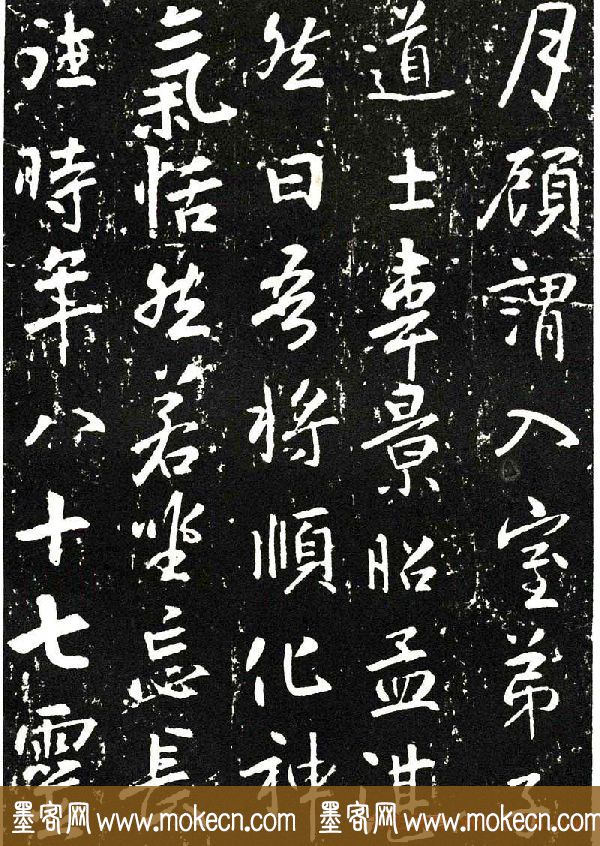 月顧謂入室弟子
道士韋景昭孟湛
然曰吾將順化神
氣恬然若坐忘長
往時年八十七靈
墨客网 www.mokecn.com 墨客网 www.mokecn.com